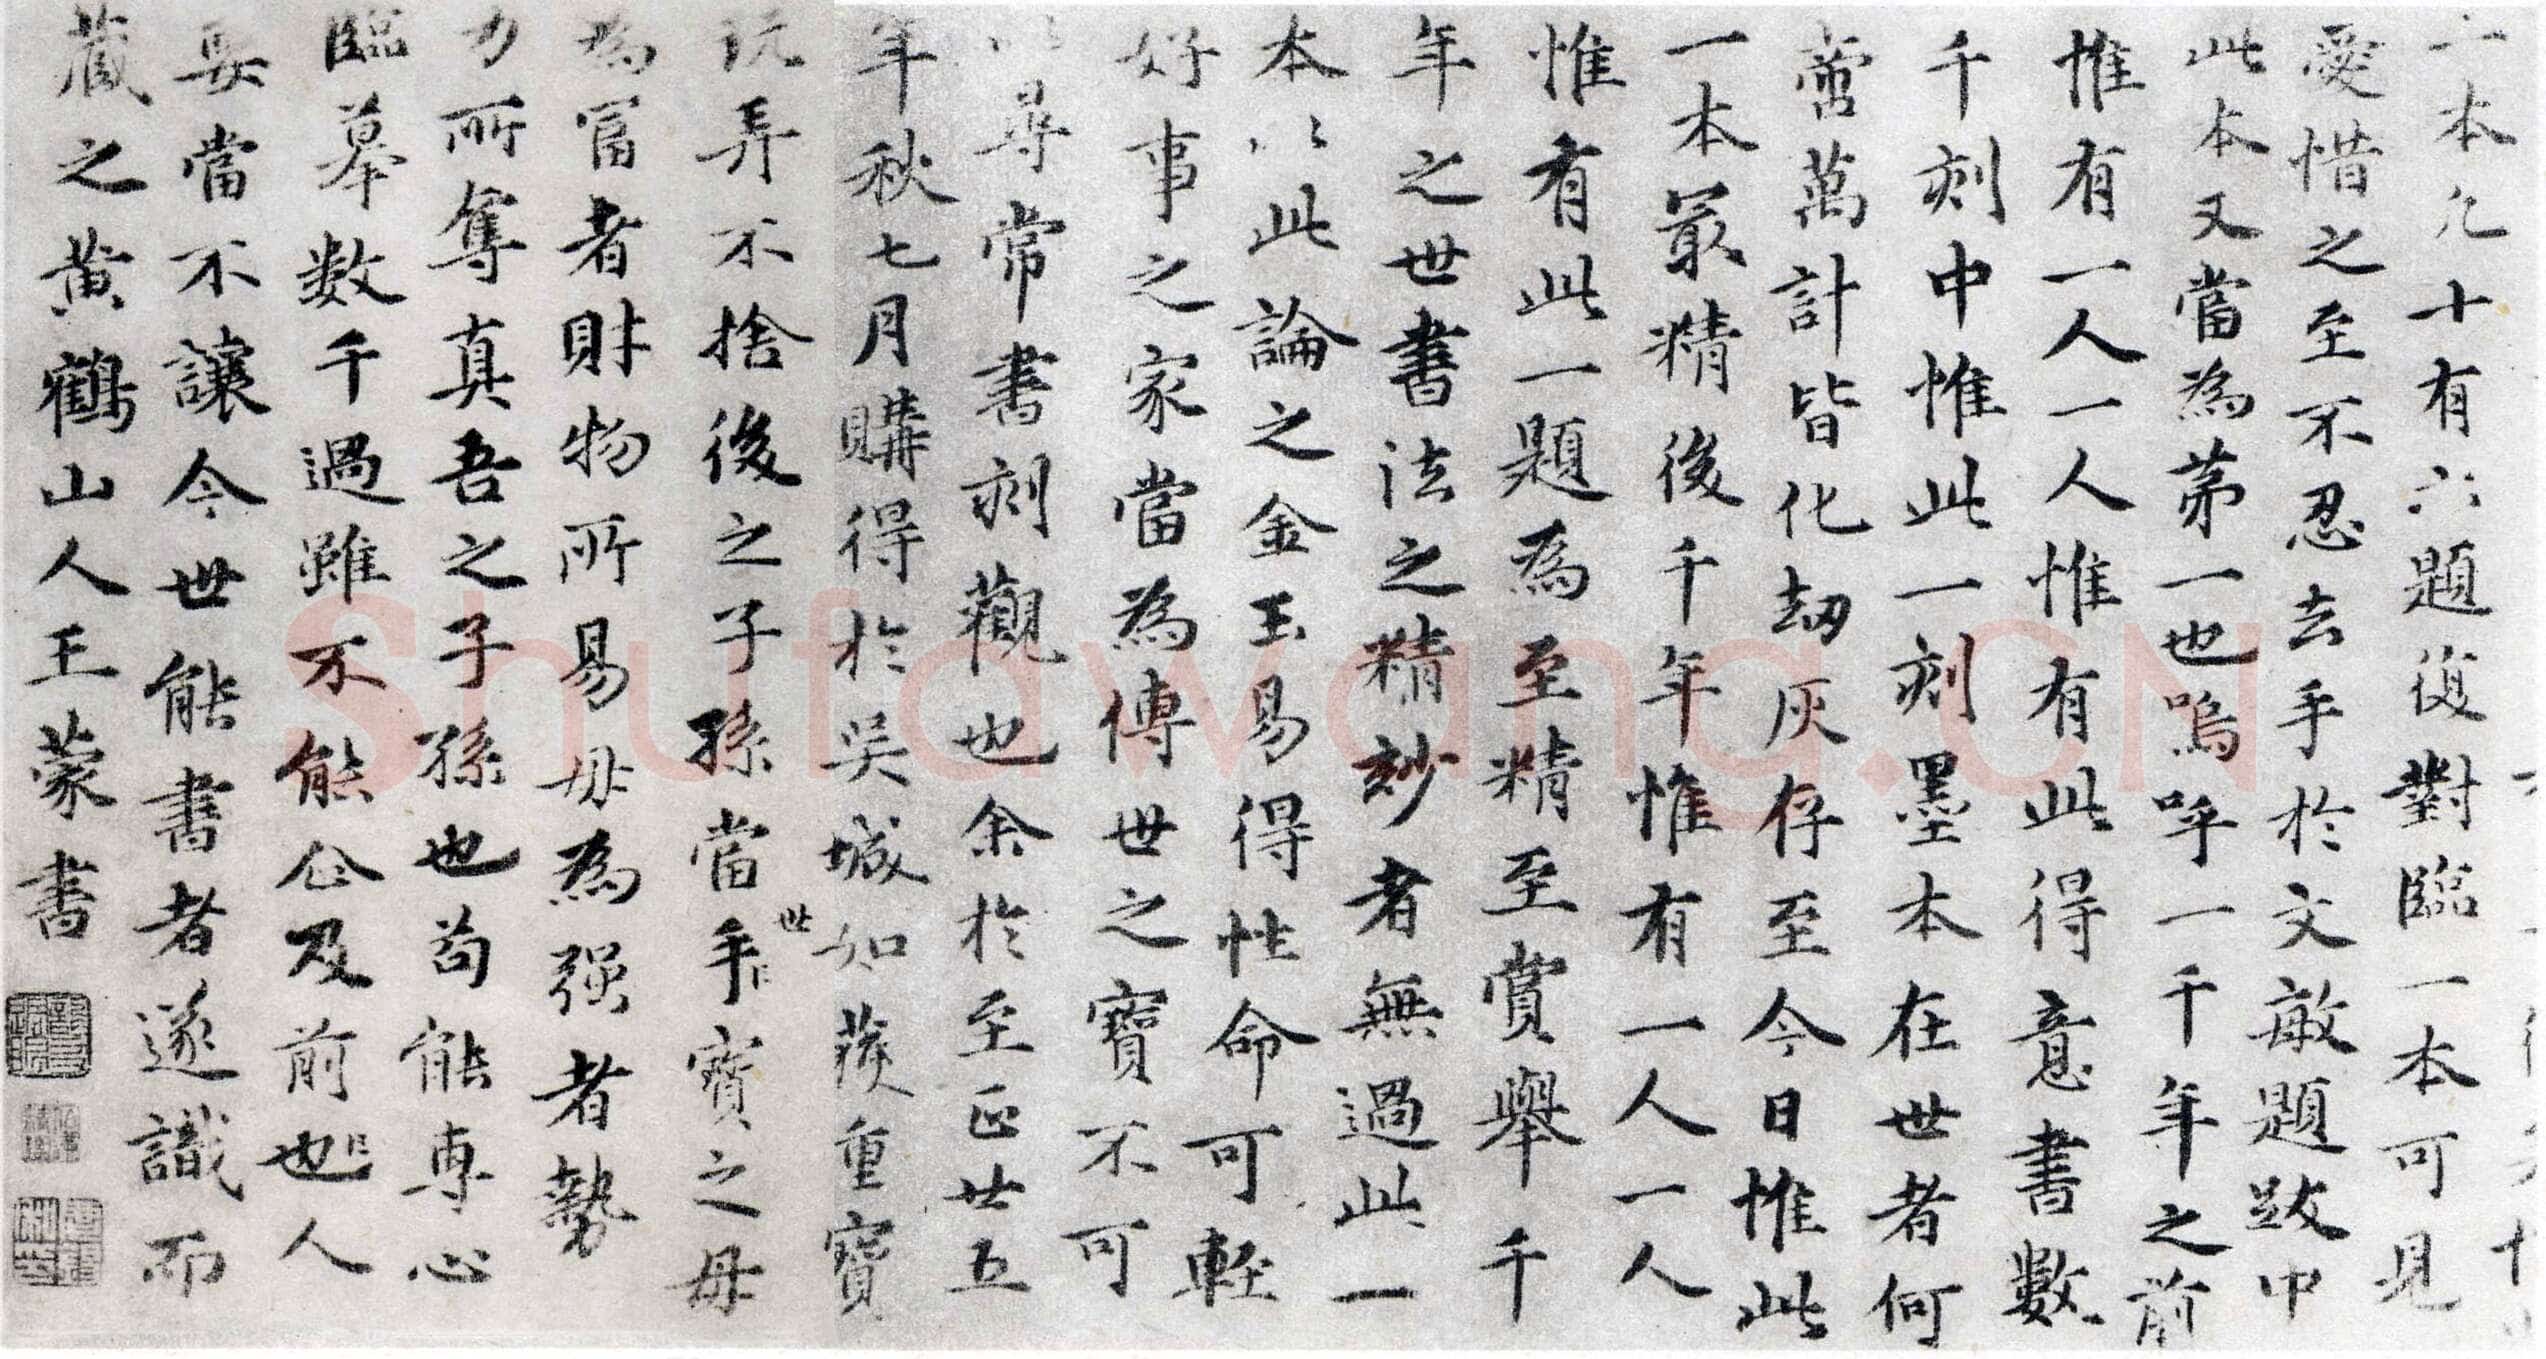 本凡十有六題復對臨一本可見
愛惜之至不忍去手於文敏題跋中
此本又當為第一也嗚呼一千年之前
惟有一人一人惟有此得意書數
千刻中惟此一刻墨本在世者何
啻萬計皆化劫灰存至今日惟此
一本最精後千年惟有一人一人
惟有此一題為至精至賞舉千
年之世書法之精妙者無過此一
本以此論之金玉易得性命可輕
好事之家當為傳世之寶不可
以尋常書刻觀也余於至正廿五
年秋七月購得於吳城如獲重寶
玩弄不捨後之子孫當世手寶之毋
為富者財物所易毋為强者勢
力所奪真吾之子孫也苟能專心
臨摹數千過雖不能企及前也人
要當不讓今世能書者遂識而
藏之黃鶴山人王蒙書
Shufawang.CN